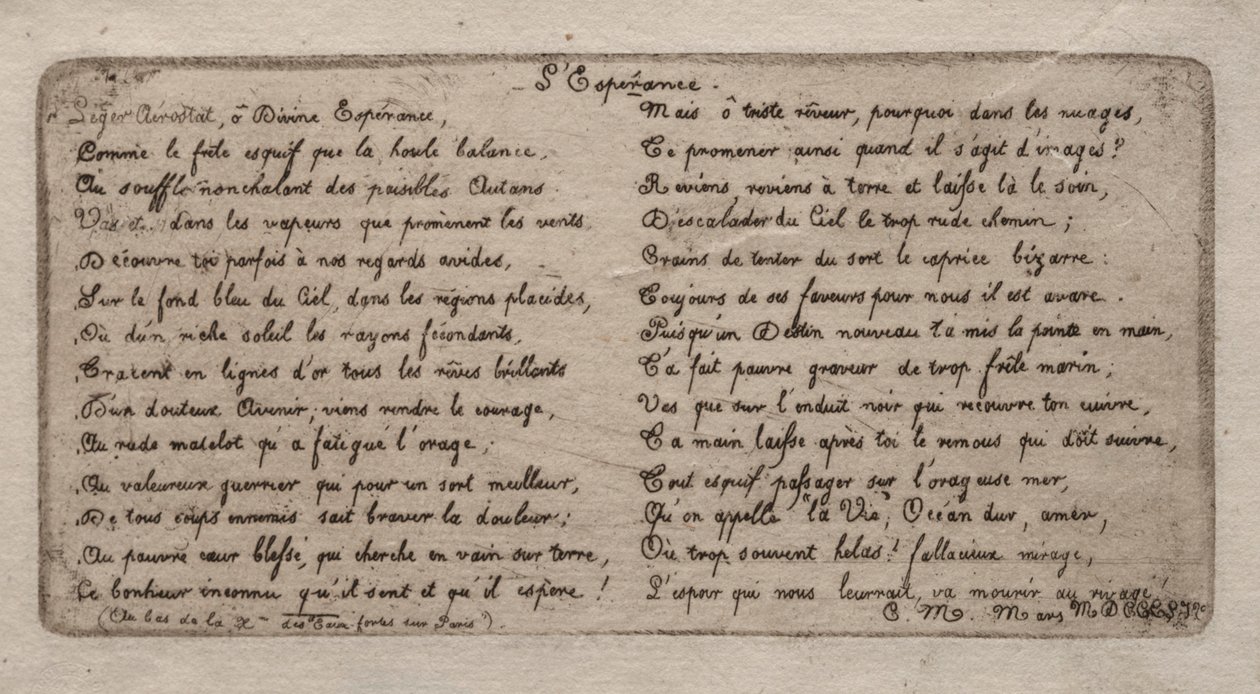 L'Espérance.
Léger Aérostat, ô Divine Espérance,
Comme le frêle esquif que la houle balance,
Au souffle nonchalant des paisibles Autans
Vas et.. dans les vapeurs que promènent les vents
Découvre toi parfois à nos regards avides,
Sur le fond bleu du Ciel, dans les régions placides,
Où d'un riche soleil les rayons fécondants,
Tracent en lignes d'or tous les rêves brillants
D'un douteux Avenir; viens rendre le courage,
Au rude matelot qu'a fatigué l'orage;
Au valeureux guerrier qui pour un sort meilleur,
De tous coups ennemis sait braver la douleur;
Au pauvre cœur blessé, qui cherche en vain sur terre,
Le bonheur inconnu qu'il sent et qu'il espère!
(Au bas de la des "Eaux-fortes sur Paris").
Mais ô triste rêveur, pourquoi dans les nuages,
Te promener ainsi quand il s'ágit d'images?
Reviens, reviens à terre et laisse là le soin,
D'escalader du Ciel le trop rude chemin;
Crains de tenter du sort le caprice bizarre:
Toujours de ses faveurs pour nous il est avare.
Puisqu'un Destin nouveau t'a mis la pointe en main,
T'a fait pauvre graveur de trop frêle marin;
Vas que sur l'enduit noir qui recouvre ton cuivre,
Ta main laisse après toi le remous qui doit suivre,
Tout esquif passager sur l'orageuse mer,
Qu'on appelle "la Vie", Océan dur, amer,
Où trop souvent helas! fallacieux mirage,
L'espoir qui nous leurrait, va mourir au rivage!
C. M. Mars